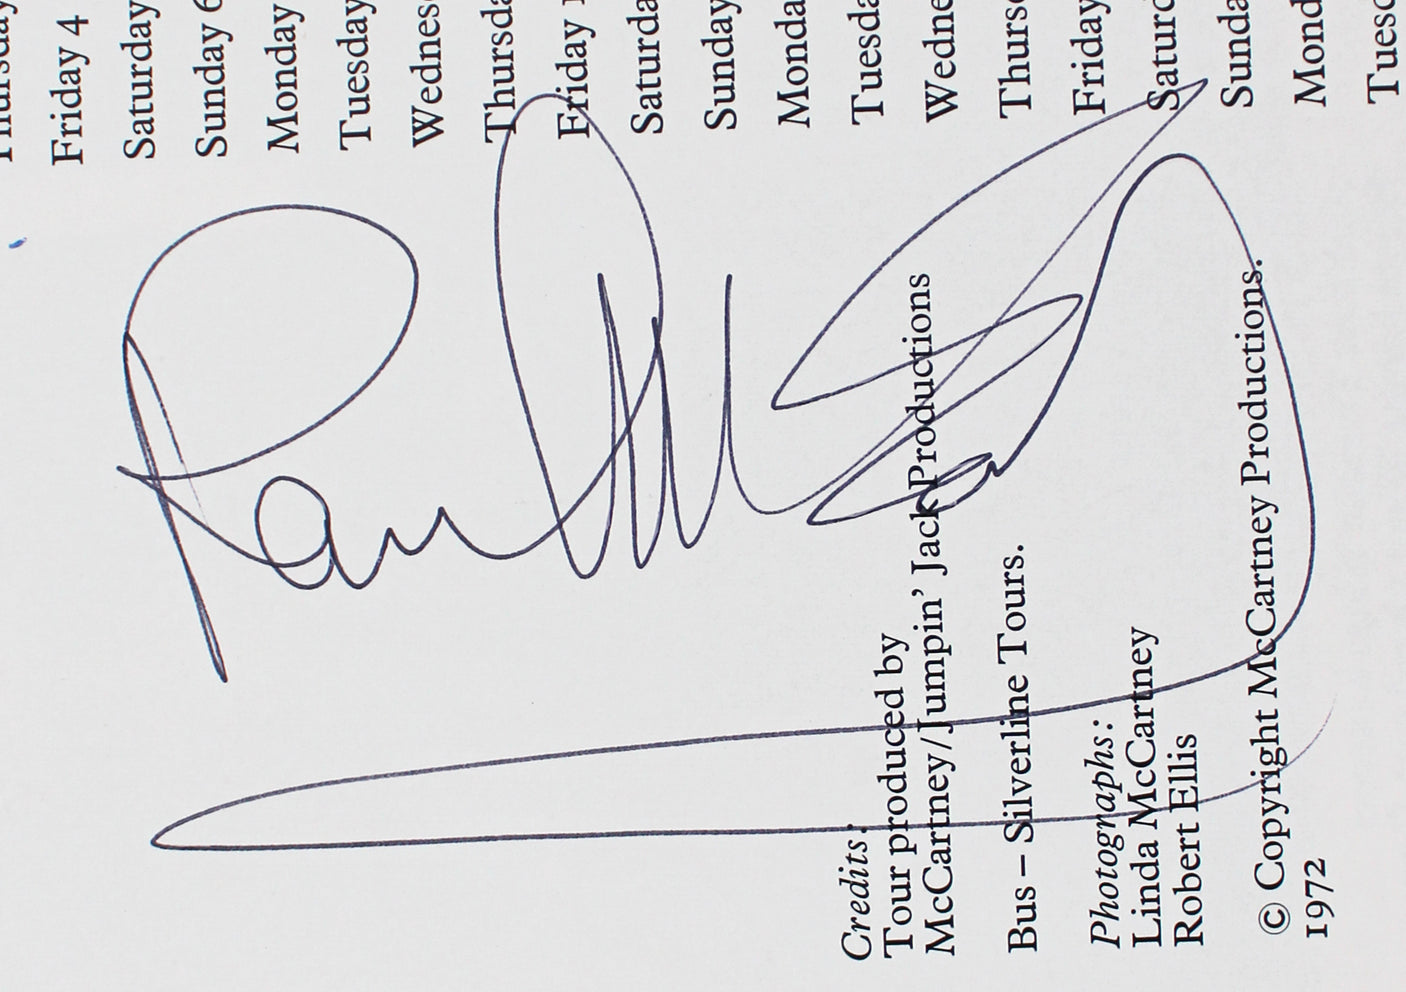 Thursday
Friday 4
Saturday
Sunday 6
Monday
Tuesday
Wednes
Thursda
Friday
Saturda
Sunday
Monda
Tuesda
Wedne
Thurs
Friday
Satur
Sunda
Mond
Tuesd
Paul McCartney
Credits:
Tour produced by
McCartney/Jumpin' Jack Productions
Bus – Silverline Tours.
Photographs:
Linda McCartney
Robert Ellis
© Copyright McCartney Productions.
1972